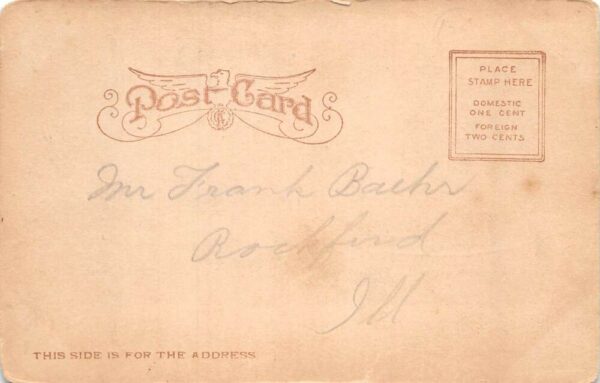 Post Card
PLACE
STAMP HERE
DOMESTIC
ONE CENT
FOREIGN
TWO CENTS
Mr Frank Baehr
Rockford
Ill
THIS SIDE IS FOR THE ADDRESS